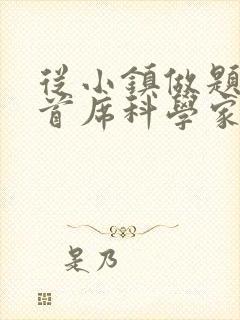 從小鎮做題
首席科學家
是乃